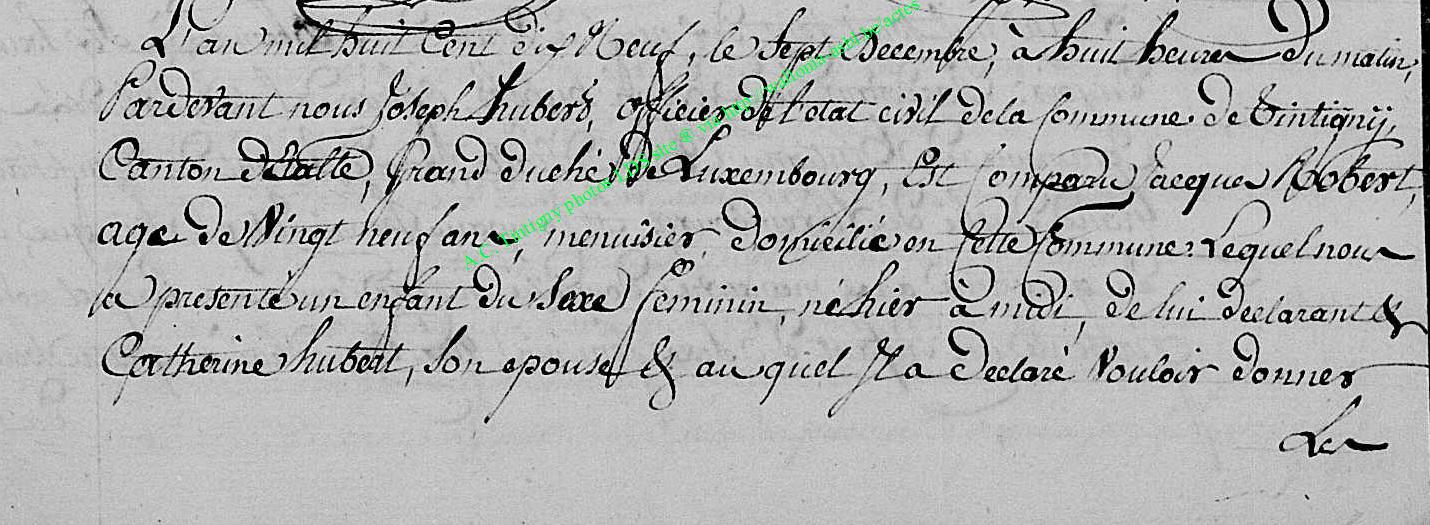 L'an mil huit Cent dix Neuf, le Sept Decembre, à huit heures du matin,
Pardevant nous Joseph hubert, officier de l'etat civil de la Commune de Tintignij,
Canton d'Etalle, Grand duché de Luxembourg, Est Comparu Jacques Robert,
age de Vingt neuf ans, menuisier, domicilié en Cette Commune: Lequel nous
a presenté un enfant du Sexe feminin, né hier à midi, de lui declarant &
Catherine hubert, son epouse & auquel Il a declaré Vouloir donner
Les
A.C. Tintigny photos site @ via http wallonia-asbl.be/actes